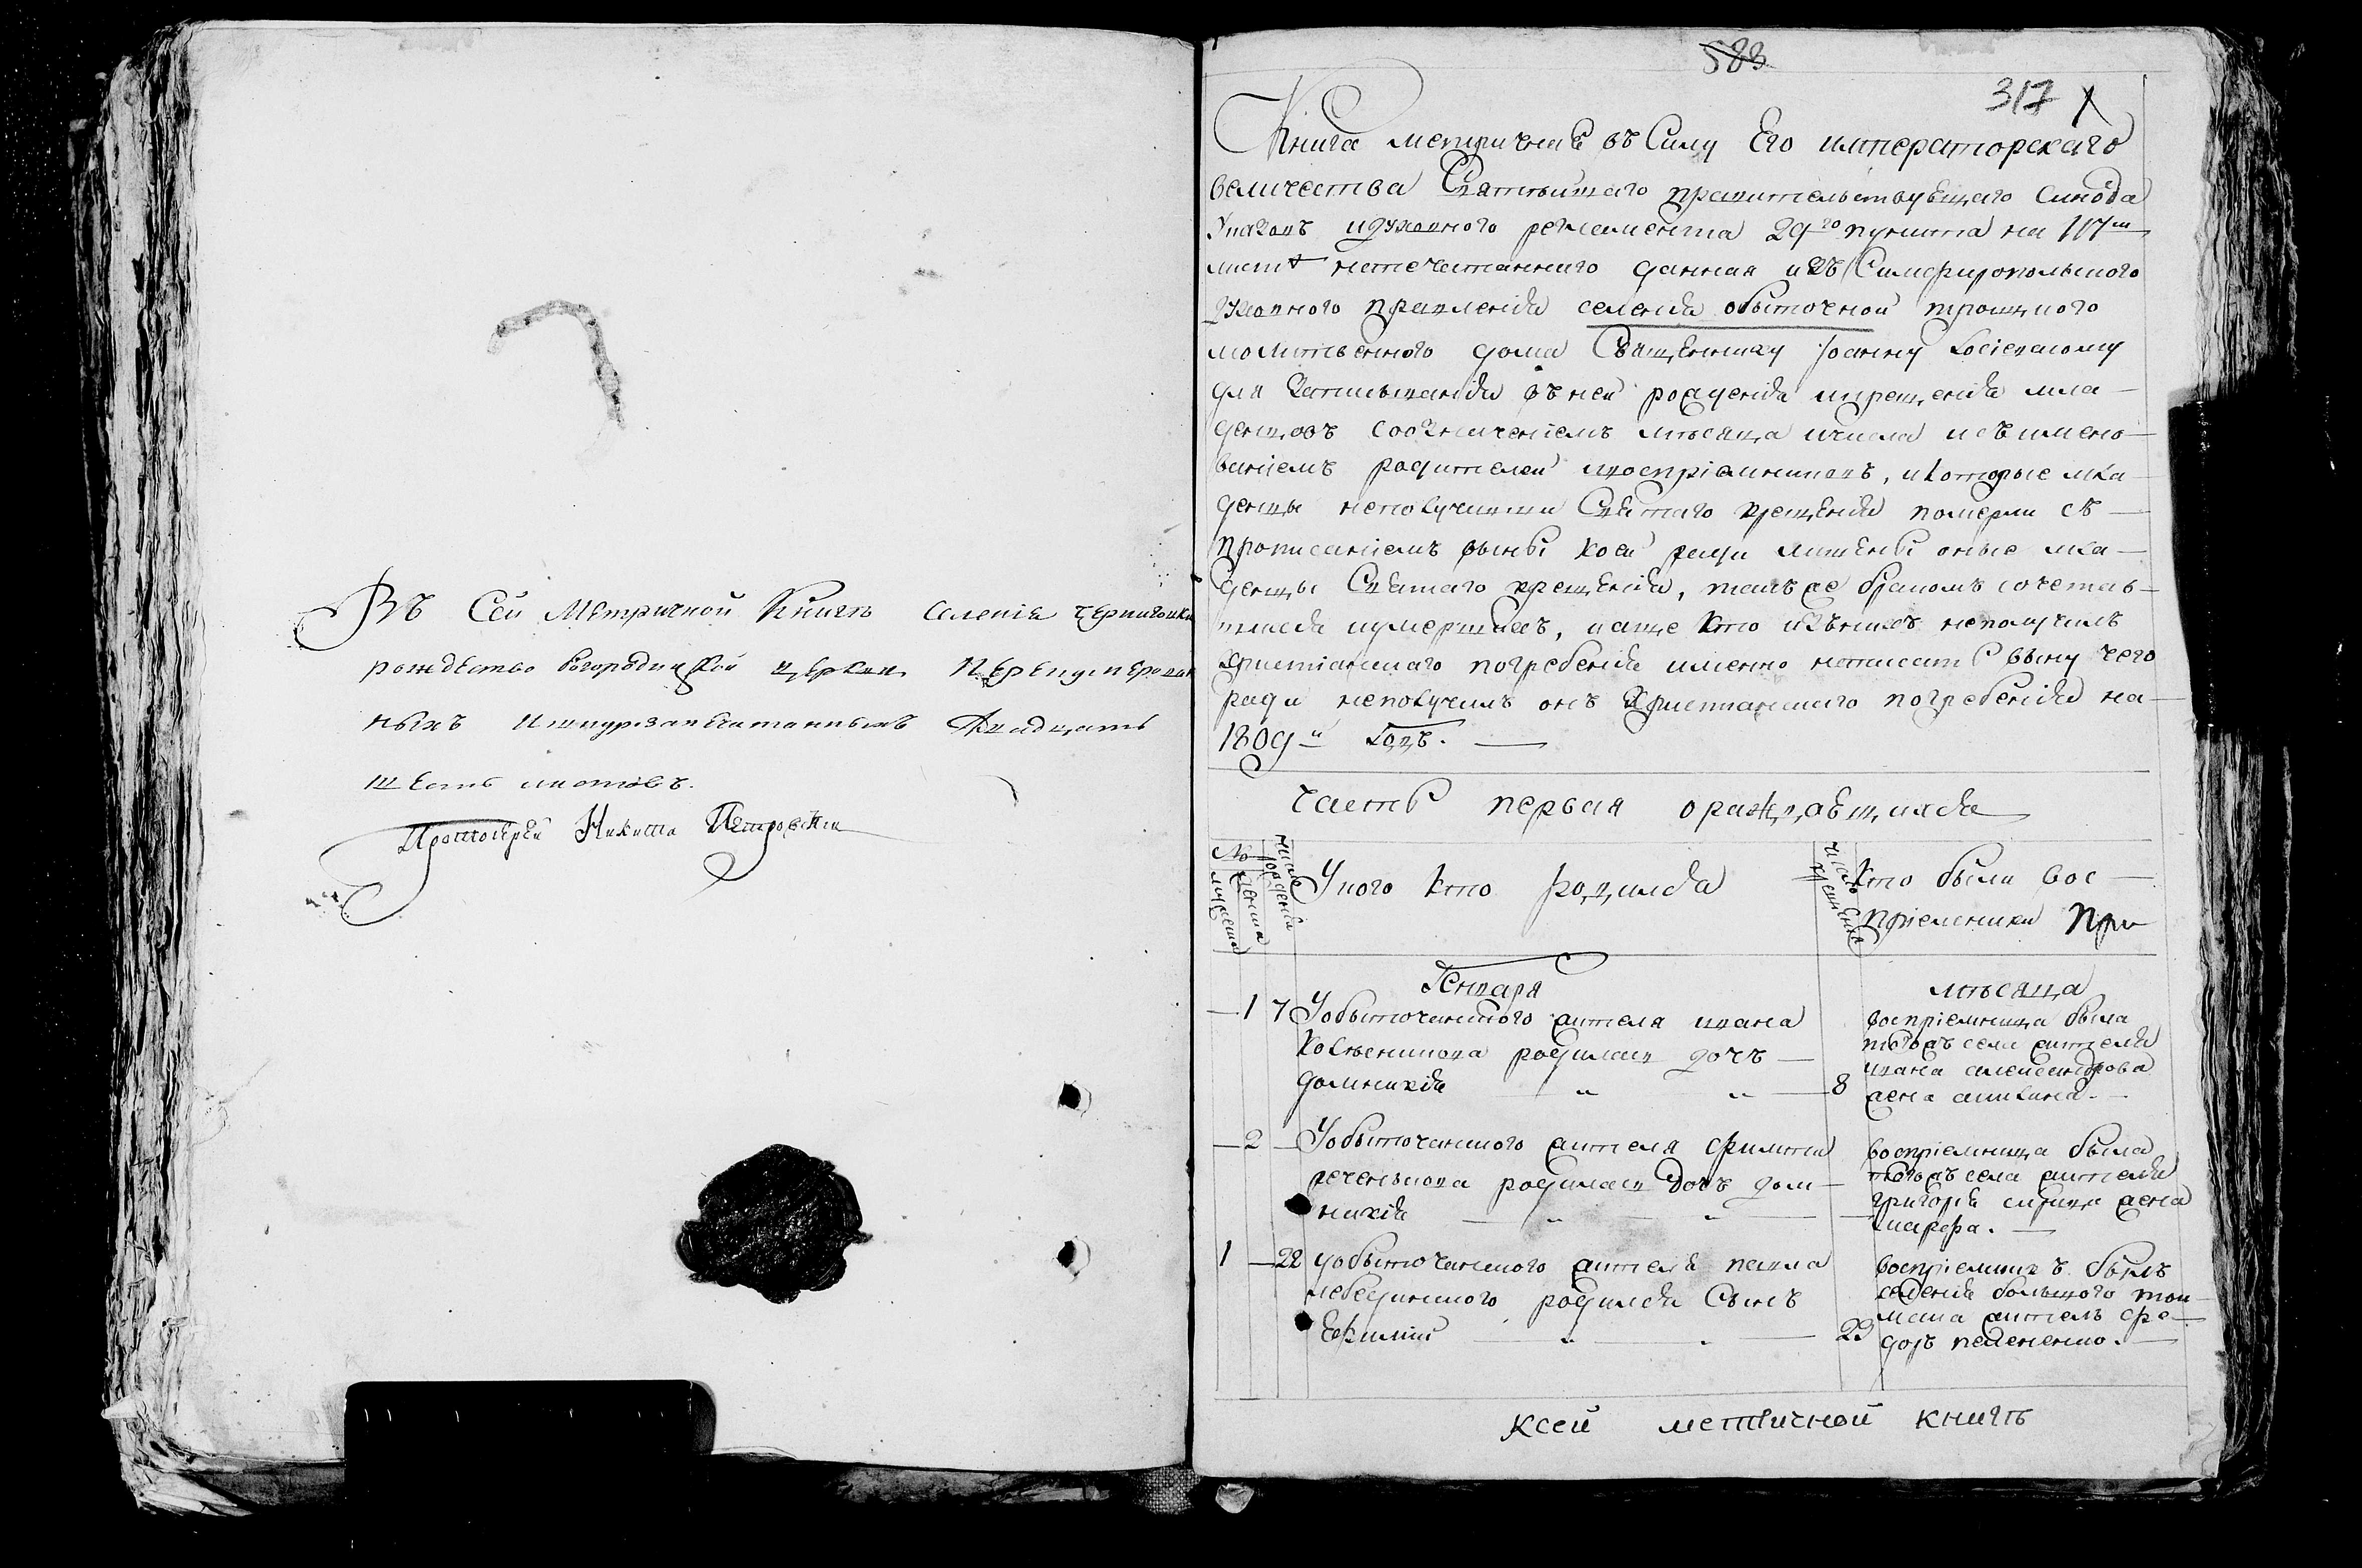 Въ Сей Метричной Книгѣ Селенія Черниговки
рождество Богородицкой Церкви Перенумерован
ныхъ и шнурзапечатанныхъ двадцать
шесть листовъ.
Протоіерей Никита
583
317
Книга метричная въ Силу Его императорскаго
величества Святѣйшаго правительствующаго синода
Указовъ идуховного регламента 29го пункта на 117м
листѣ напечатанного данная изъ Симферопольского
духовного правленія селенія обыточной троицкого
молитвенного дома Священнику Іоанну
для записыванія въ ней рожденія икрещенія мла
денцовъ сообзначеніемъ мѣсяца ичисла исъимено
ваніемъ родителей ивоспріемниковъ, икоторые мла
денцы неполучивши Святаго крещенія померли съ
прописаніемъ вины коей ради лишены оные мла
денцы Святаго крещенія, такъже бракомъ сочетав
шихся иумершихъ, иаще кто изънихъ неполучилъ
христіанскаго погребенія именно написать вину чего
ради неполучилъ онъ Христианскаго погребенія на
1809й Годъ.
часть первая ораждающихся
№
мужеска
женска
число рожденія
Укого кто родился
число крещенія
кто были вос
пріемники При
Генваря
мѣсяца
1 7 Уобыточанского жителя ивана
родилась дочь
домникія 8
воспріемница была
тогожъ села жителя
ивана александрова
жена акилина.
2 Уобыточанского жителя филипа
родилась дочь дом
никія
воспріемница была
тогожъ села жителя
григорія жена
марфа.
1 22 уобыточанского жителя павла
лебединского родился Сынъ
Ефимій 23
воспріемникъ былъ
селенія большого ток
мака житель фе
доръ
ксей метричной книгѣ